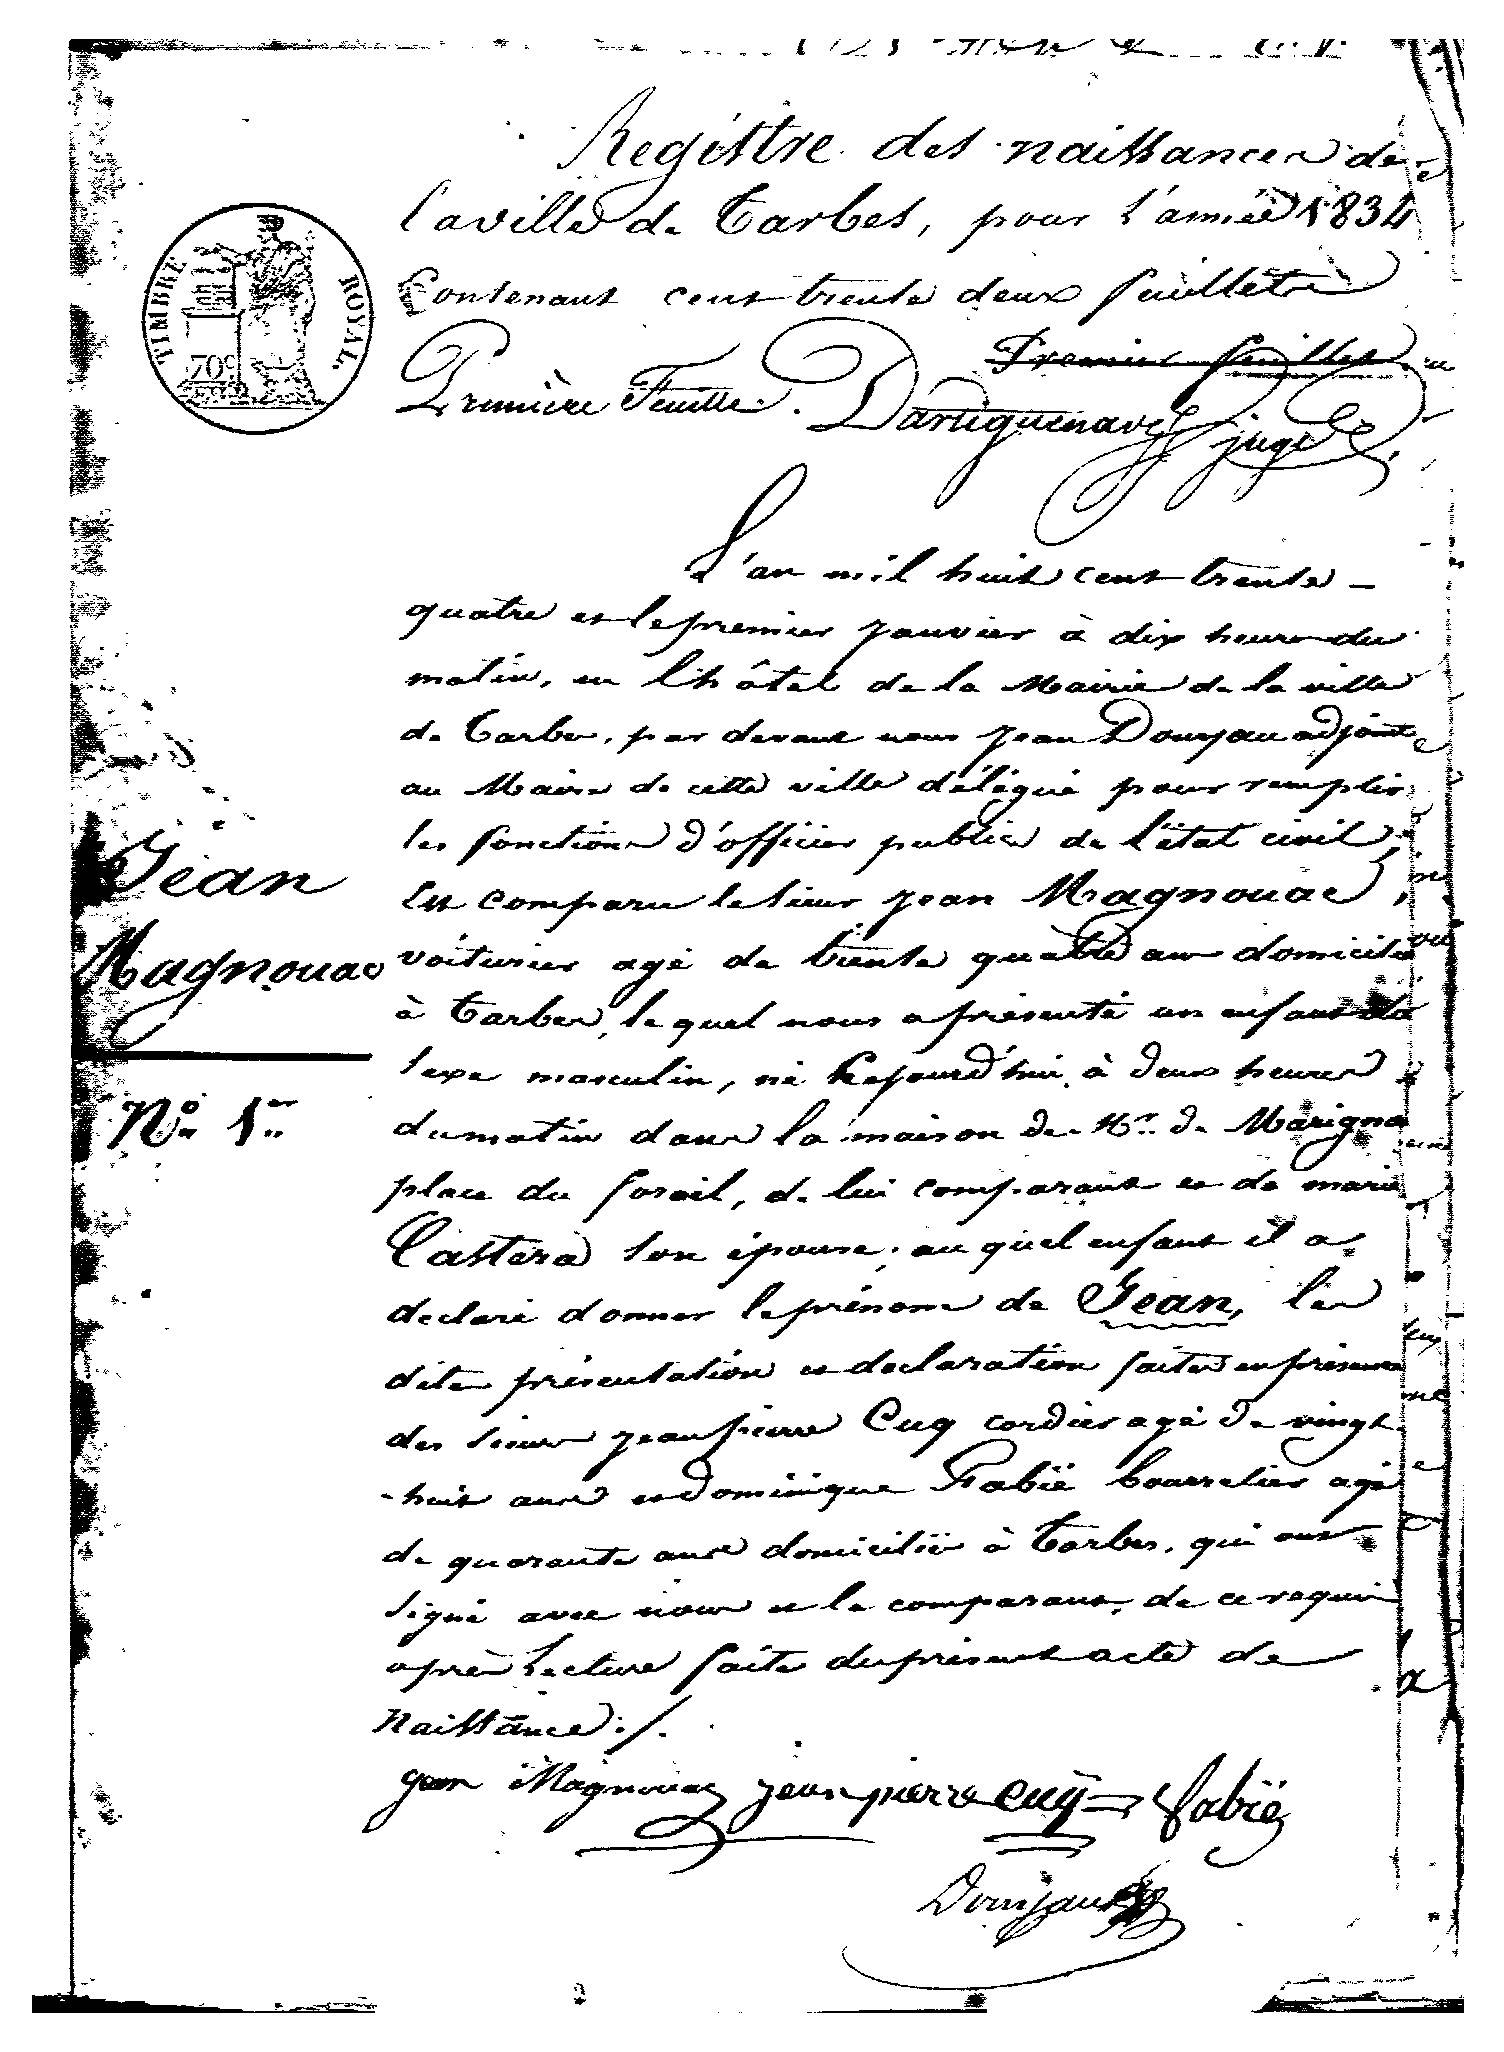 Registre des naissances de
la ville de Tarbes, pour l'année 1834
Contenant cent trente deux feuillets
Premier feuillet
Première Feuille. Daruguenave juge
TIMBRE ROYAL
70c
L'an mil huit cent trente
quatre et le premier Janvier à dix heures du
matin, en l'hôtel de la Mairie de la ville
de Tarbes, par devant nous Jean Dourjau adjoint
au Maire de cette ville délégué pour remplir
les fonctions d'officier public de l'état civil,
Est comparu le sieur Jean Magnouac,
voiturier agé de trente quatre ans domicilié
à Tarbes, lequel nous a présenté un enfant du
sexe masculin, né Cejourd'hui à deux heures
du matin dans la maison de Mr. de Marigna
place du foirail, de lui comparant et de marie
Castera son épouse, auquel enfant il a
declaré donner le prénom de Jean, les
dites présentation et declaration faites en présence
des sieurs Jean pierre Cuq cordier agé de vingt
-huit ans et dominique Fabië bourrelier agé
de quarante ans domiciliés à Tarbes, qui ont
signé avec nous et le comparant, de ce requis
après lecture faite du présent acte de
Naissance ./.
Jean Magnouac
No. 1er
jean Magnouac jean pierre cuq Fabië
Dourjau